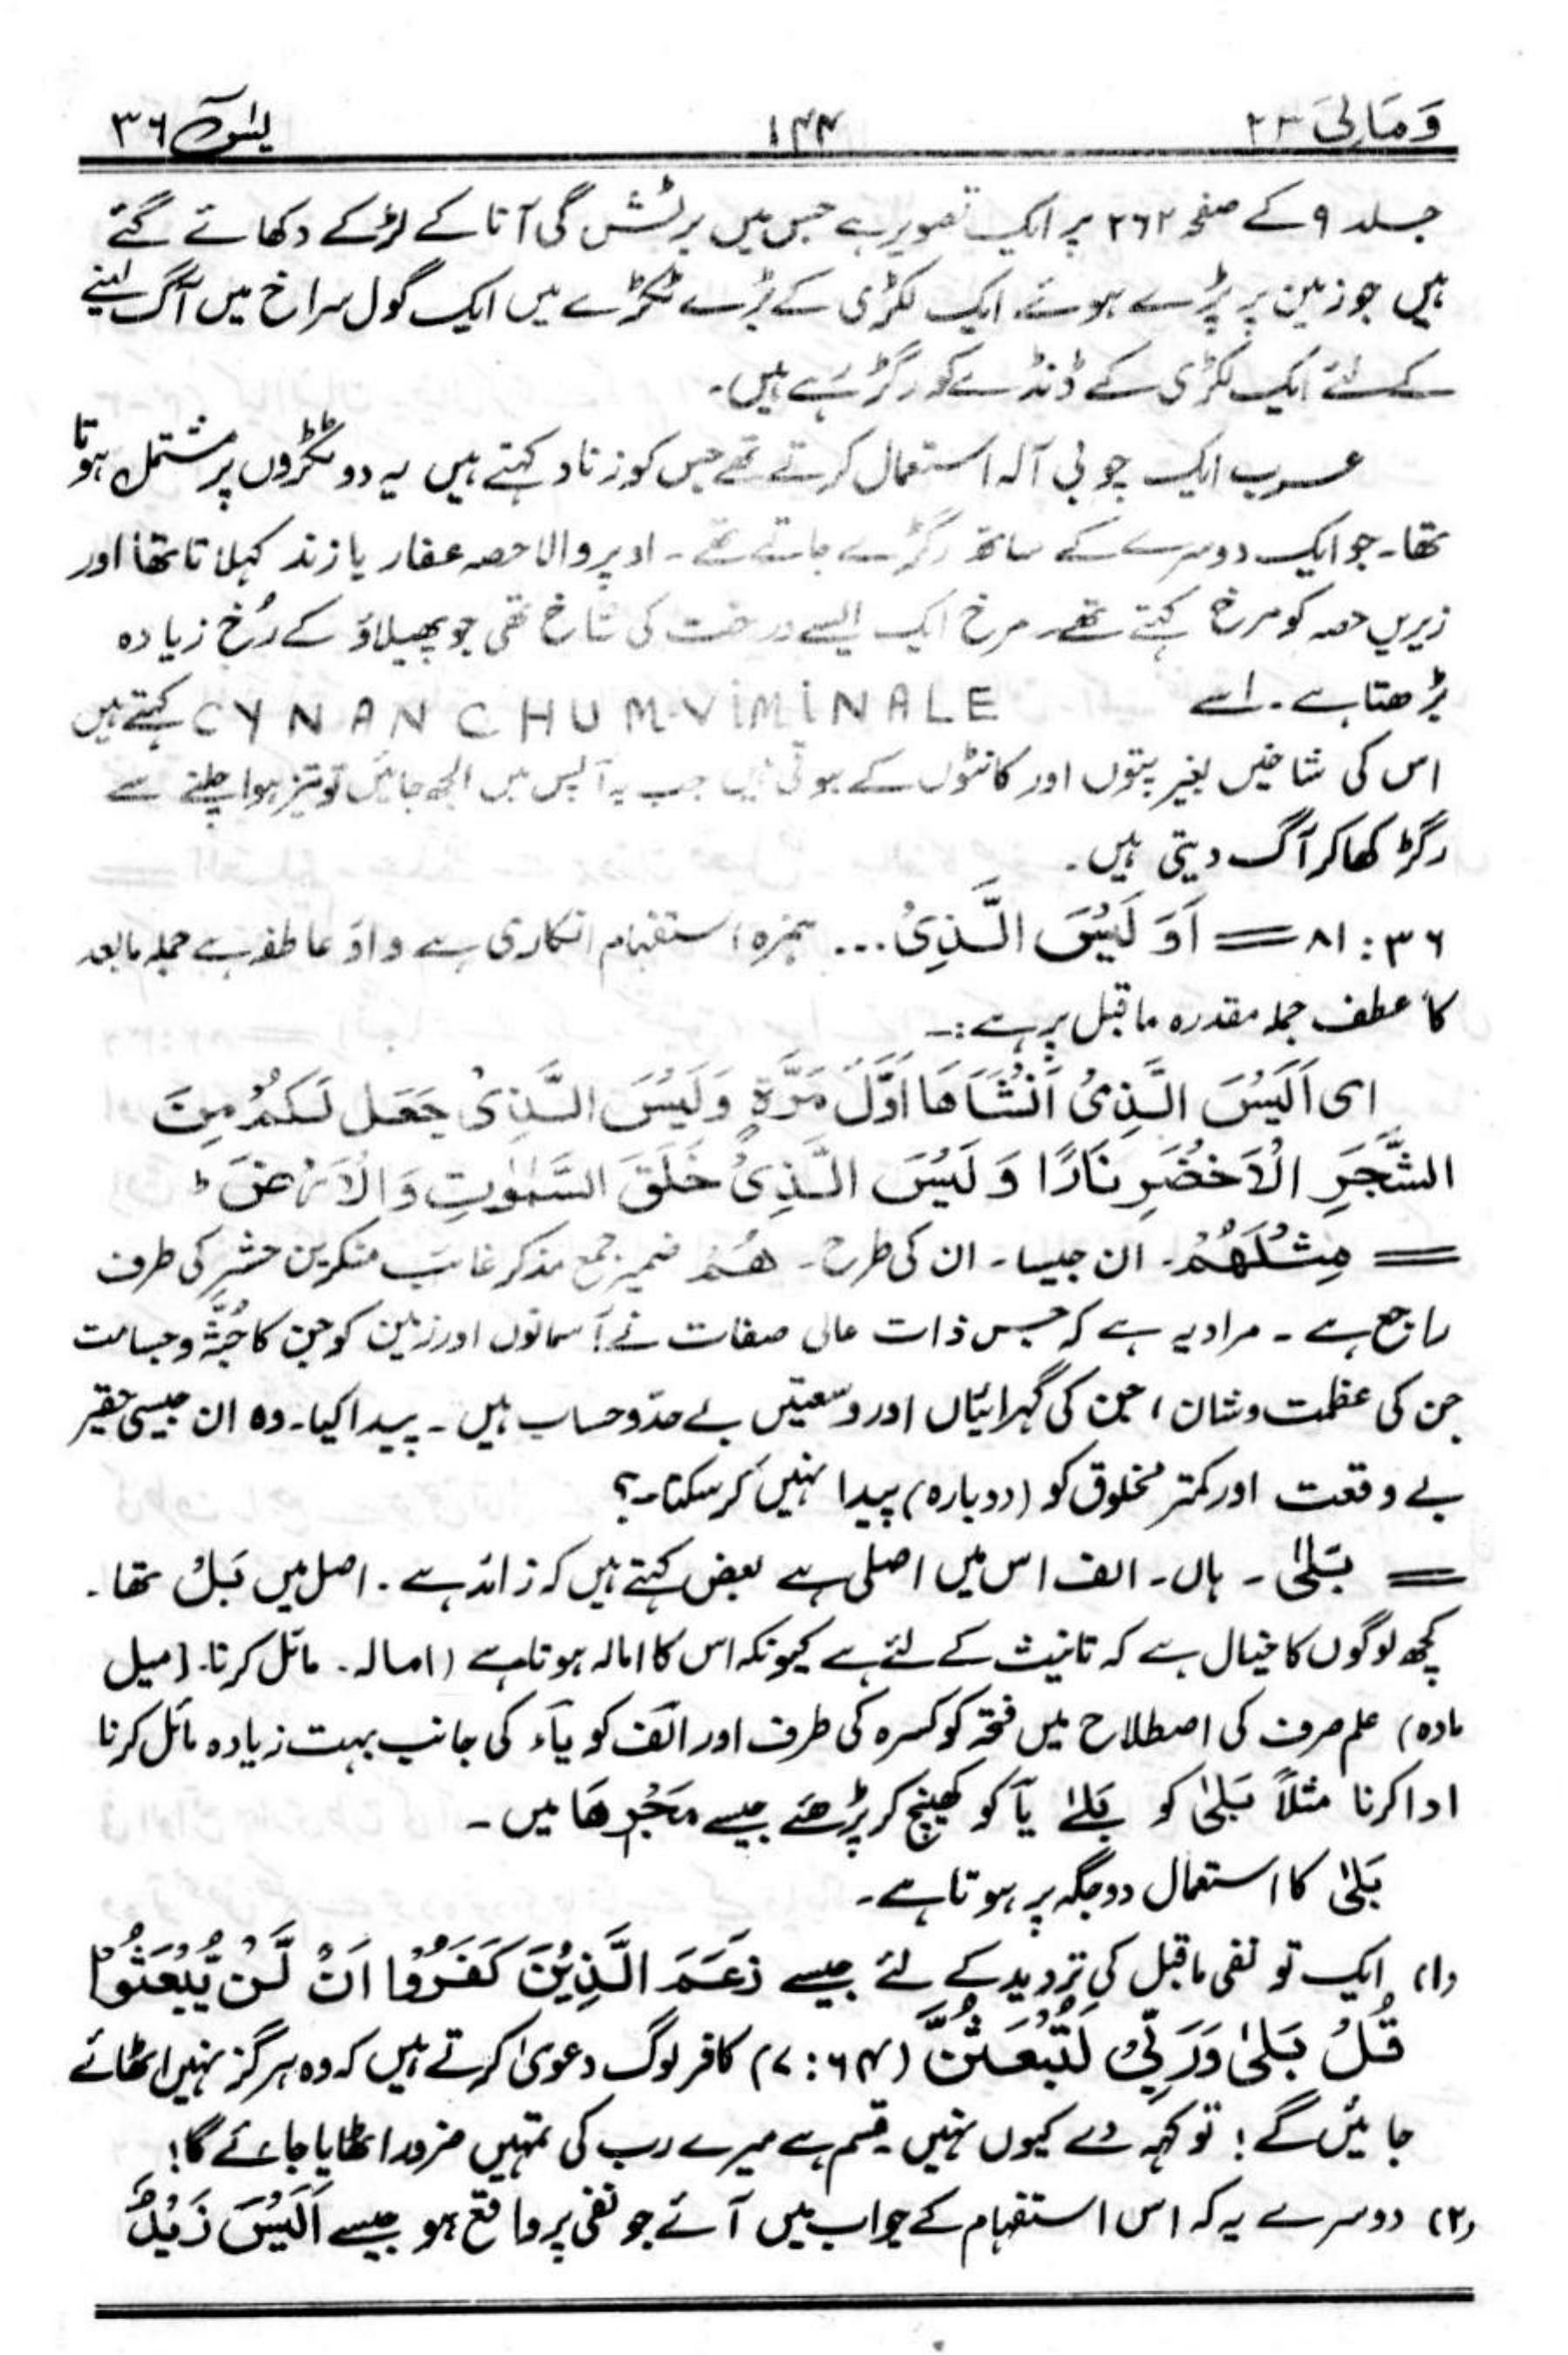 وَمَالِیَ ۲۳ ۱۴۴ یٰسٓ ۳۶
جلد ۹ کے صفحہ ۲۶۲ پر ایک تصویر ہے جس میں برٹش گی آنا کے لڑکے دکھائے گئے
ہیں جو زمین پر پڑے ہوئے ایک لکڑی کے بڑے ٹکڑے میں ایک گول سراخ میں آگ لینے
کے لئے ایک لکڑی کے ڈنڈے کو رگڑ رہے ہیں۔
عرب ایک چوبی آلہ استعمال کرتے تھے جس کو زناد کہتے ہیں یہ دو ٹکڑوں پر مشتمل ہوتا
تھا۔ جو ایک دوسرے کے ساتھ رگڑے جاتے تھے۔ اوپر والا حصہ عفار یا زند کہلاتا تھا اور
زیریں حصہ کو مرخ کہتے تھے۔ مرخ ایک ایسے درخت کی شاخ تھی جو پھیلاؤ کے رُخ زیادہ
بڑھتا ہے۔ اسے CYNANCHUM VIMINALE کہتے ہیں
اس کی شاخیں بغیر پتوں اور کانٹوں کے ہوتی ہیں جب یہ آپس میں الجھ جائیں تو تیز ہوا چلنے سے
رگڑ کھا کر آگ دیتی ہیں۔
۳۶ : ۸۱ = اَوَ لَیْسَ الَّذِیْ ... ہمزہ استفہام انکاری ہے واؤ عاطفہ ہے جملہ مابعد
کا عطف جملہ مقدرہ ماقبل پر ہے :۔
ای اَلَیْسَ الَّذِیْ اَنْشَاَھَا اَوَّلَ مَرَّۃٍ وَلَیْسَ الَّذِیْ جَعَلَ لَکُمْ مِنَ
الشَّجَرِ الْاَخْضَرِ نَارًا وَ لَیْسَ الَّذِیْ خَلَقَ السَّمٰوٰتِ وَالْاَرْضَ ط
= مِثْلَھُمْ۔ ان جیسا۔ ان کی طرح۔ ھُمْ ضمیر جمع مذکر غائب منکرین حشر کی طرف
راجع ہے ۔ مراد یہ ہے کہ جس ذات عالی صفات نے آسمانوں اور زمین کو جن کا جُثّہ و جسامت
جن کی عظمت و شان، جن کی گہرائیاں اور وسعتیں بے حدّ و حساب ہیں ۔ پیدا کیا۔ وہ ان جیسی حقیر
بے وقعت اور کمتر مخلوق کو (دوبارہ) پیدا نہیں کر سکتا۔؟
= بَلٰی ۔ ہاں۔ الف اس میں اصلی ہے بعض کہتے ہیں کہ زائد ہے۔ اصل میں بَلْ تھا۔
کچھ لوگوں کا خیال ہے کہ تانیث کے لئے ہے کیونکہ اس کا امالہ ہوتا ہے (امالہ۔ مائل کرنا۔ (میل
مادہ) علم صرف کی اصطلاح میں فتحہ کو کسرہ کی طرف اور الف کو یاء کی جانب بہت زیادہ مائل کرنا
ادا کرنا مثلاً بَلٰی کو بَلےٰ یآ کو کھینچ کر پڑھتے جیسے مَجْرٖھَا میں ۔
بَلٰی کا استعمال دو جگہ پر ہوتا ہے۔
(۱) ایک تو نفی ماقبل کی تردید کے لئے جیسے زَعَمَ الَّذِیْنَ کَفَرُوْا اَنْ لَّنْ یُّبْعَثُوْا
قُلْ بَلٰی وَرَبِّیْ لَتُبْعَثُنَّ (۶۴ : ۷) کافر لوگ دعویٰ کرتے ہیں کہ وہ ہرگز نہیں اٹھائے
جائیں گے ! تو کہہ دے کیوں نہیں قسم ہے میرے رب کی تمہیں ضرور اٹھایا جائے گا!
(۲) دوسرے یہ کہ اس استفہام کے جواب میں آئے جو نفی پر واقع ہو جیسے اَلَیْسَ زَیْدٌ